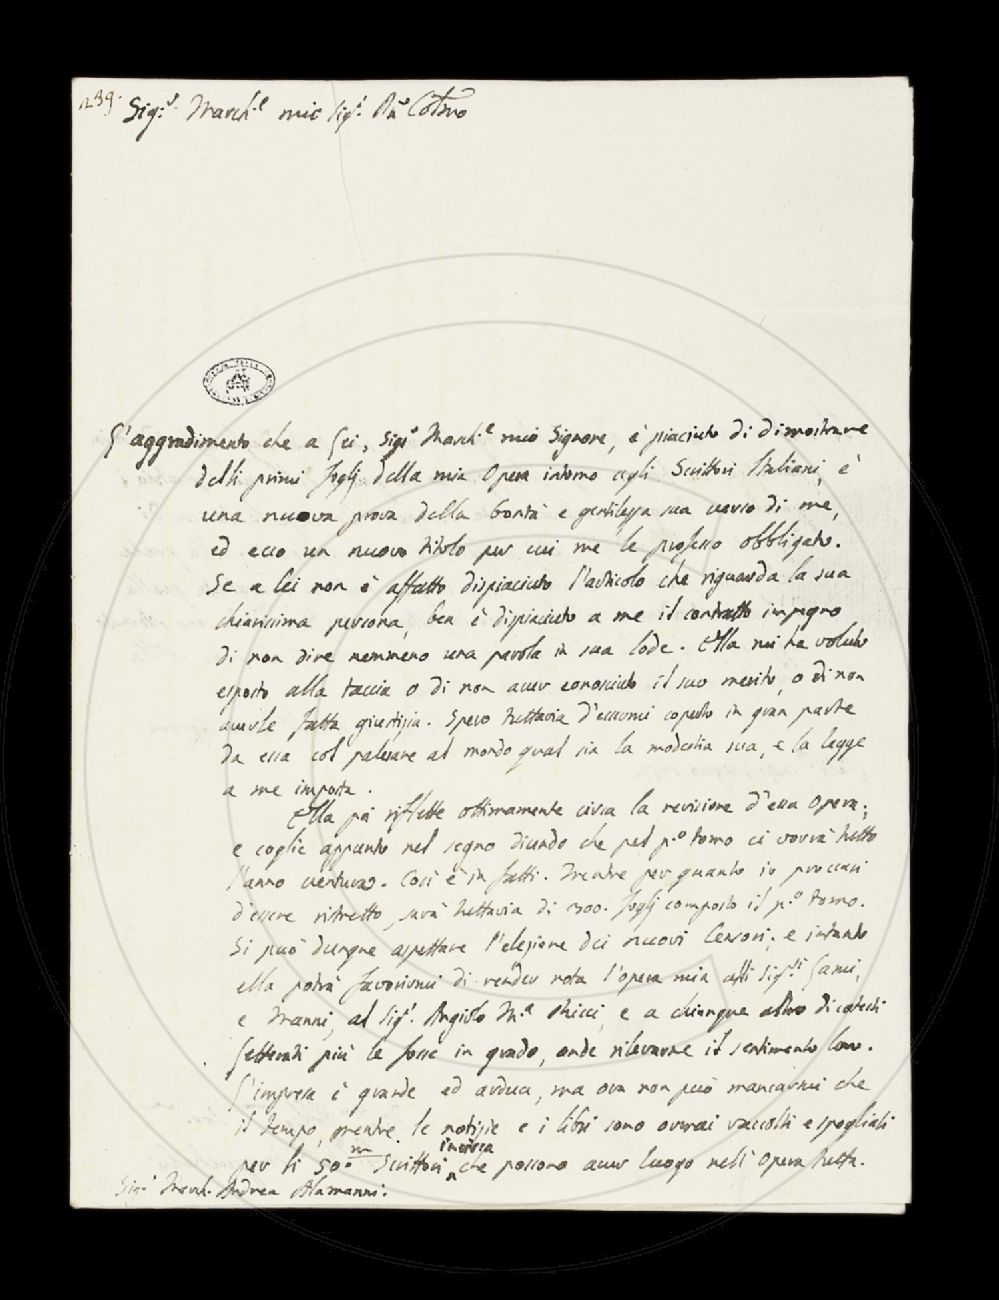 239.
Sig.r March.e mio Sig.r Pn Colmo
L'aggradimento che a Lei, Sig.r March.e mio Signore, è piaciuto di dimostrare
delli primi foglj della mia Opera intorno agli Scrittori Italiani, è
una nuova prova della bontà e gentilezza sua verso di me,
ed ecco un nuovo titolo per cui me le professo obbligato.
Se a lei non è affatto dispiaciuto l'articolo che riguarda la sua
chiarissima persona, ben è dispiaciuto a me il contratto impegno
di non dire nemmeno una parola in sua lode. Ella mi ha voluto
esposto alla taccia o di non aver conosciuto il suo merito, o di non
averle fatta giustizia. Spero tuttavia d'essermi coperto in gran parte
da essa col palesare al mondo qual sia la modestia sua, e la legge
a me imposta.
Ella poi riflette ottimamente circa la revisione d'essa Opera;
e coglie appunto nel segno dicendo che pel p.o tomo ci vorrà tutto
l'anno venturo. Così è in fatti. Mentre per quanto io proccuri
d'essere ristretto, sarà tuttavia di 300. foglj composto il p.o tomo.
Si può dunque aspettare l'elezione dei nuovi Censori; e intanto
ella potrà favorirmi di render nota l'opera mia alli Sig.ri Lami,
e Manni, al Sig.r Angiolo M.a Ricci, e a chiunque altro di cotesti
Letterati più le fosse in grado, onde rilevarne il sentimento loro.
L'impresa è grande ed ardua, ma ora non può mancarmi che
il tempo, mentre le notizie e i libri sono oramai raccolti e spogliati
per li 50.m Scrittori incirca che possono aver luogo nell'Opera tutta.
Sig.r March. Andrea Alamanni.